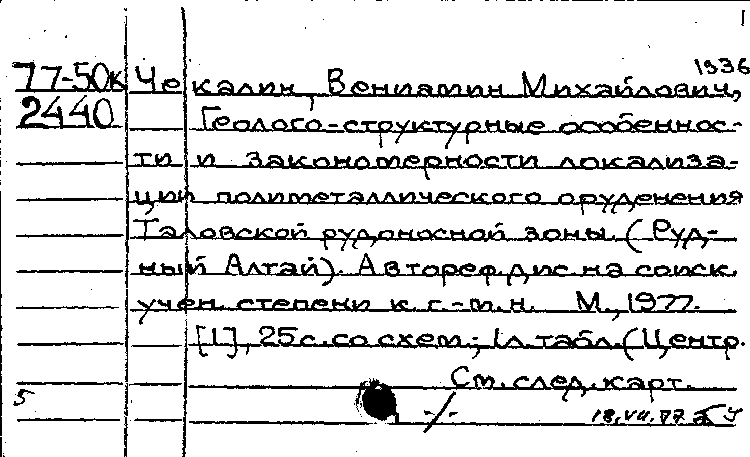 1936
77-50к Чекалин, Вениамин Михайлович,
2440 Геолого-структурные особеннос-
ти и закономерности локализа-
ции полиметаллического оруденения
Таловской рудоносной зоны. (Руд-
ный Алтай). Автореф. дис. на соиск.
учен. степени к. г.-м. н. М., 1977.
[1], 25 с. со схем.; 1 л. табл. (Центр.
См. след. карт.
5 -/- 18.VII.77